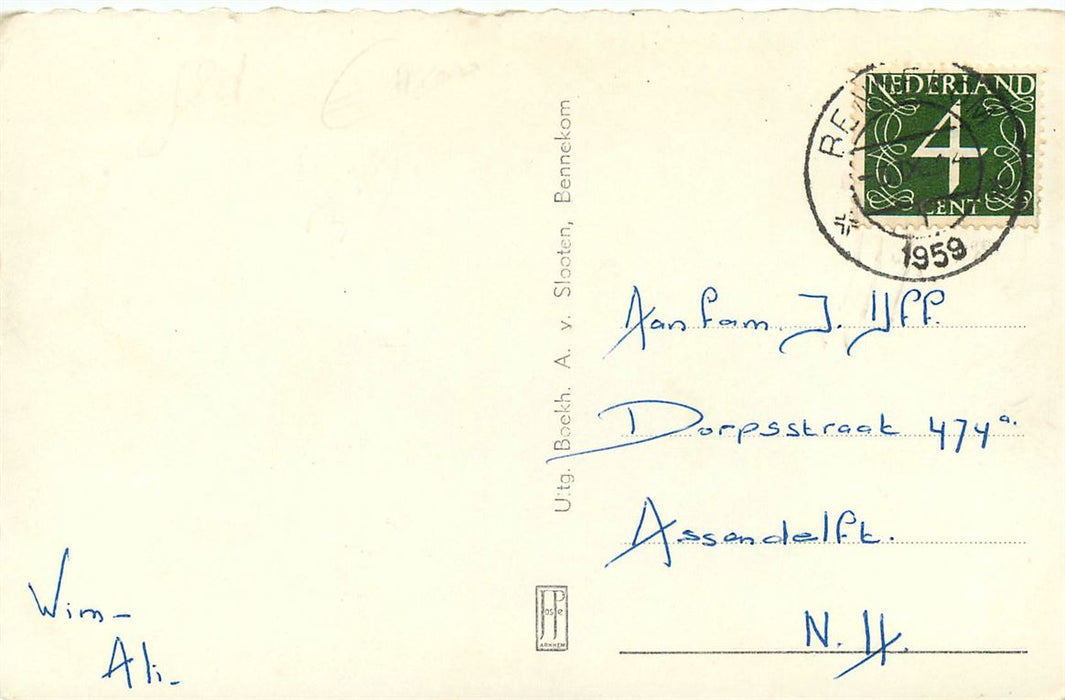 NEDERLAND
4
CENT
1959
Uitg. Boekh. A. v. Slooten, Bennekom
Aan fam. J. IJff.
Dorpsstraat 474a.
Assendelft.
N. H.
Wim-
Ali-
JosPe
ARNHEM